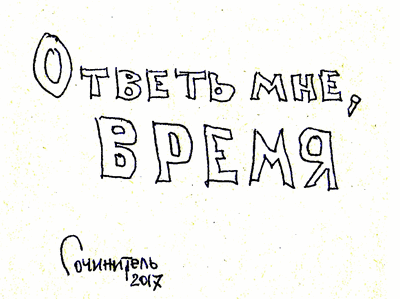 Ответь мне,
ВРЕМЯ
Сочинитель
2017